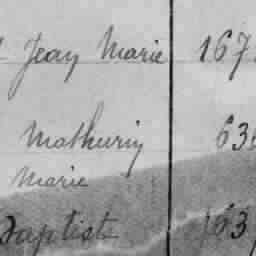 Jean Marie 167
Mathurin 63
Marie
Baptiste 163